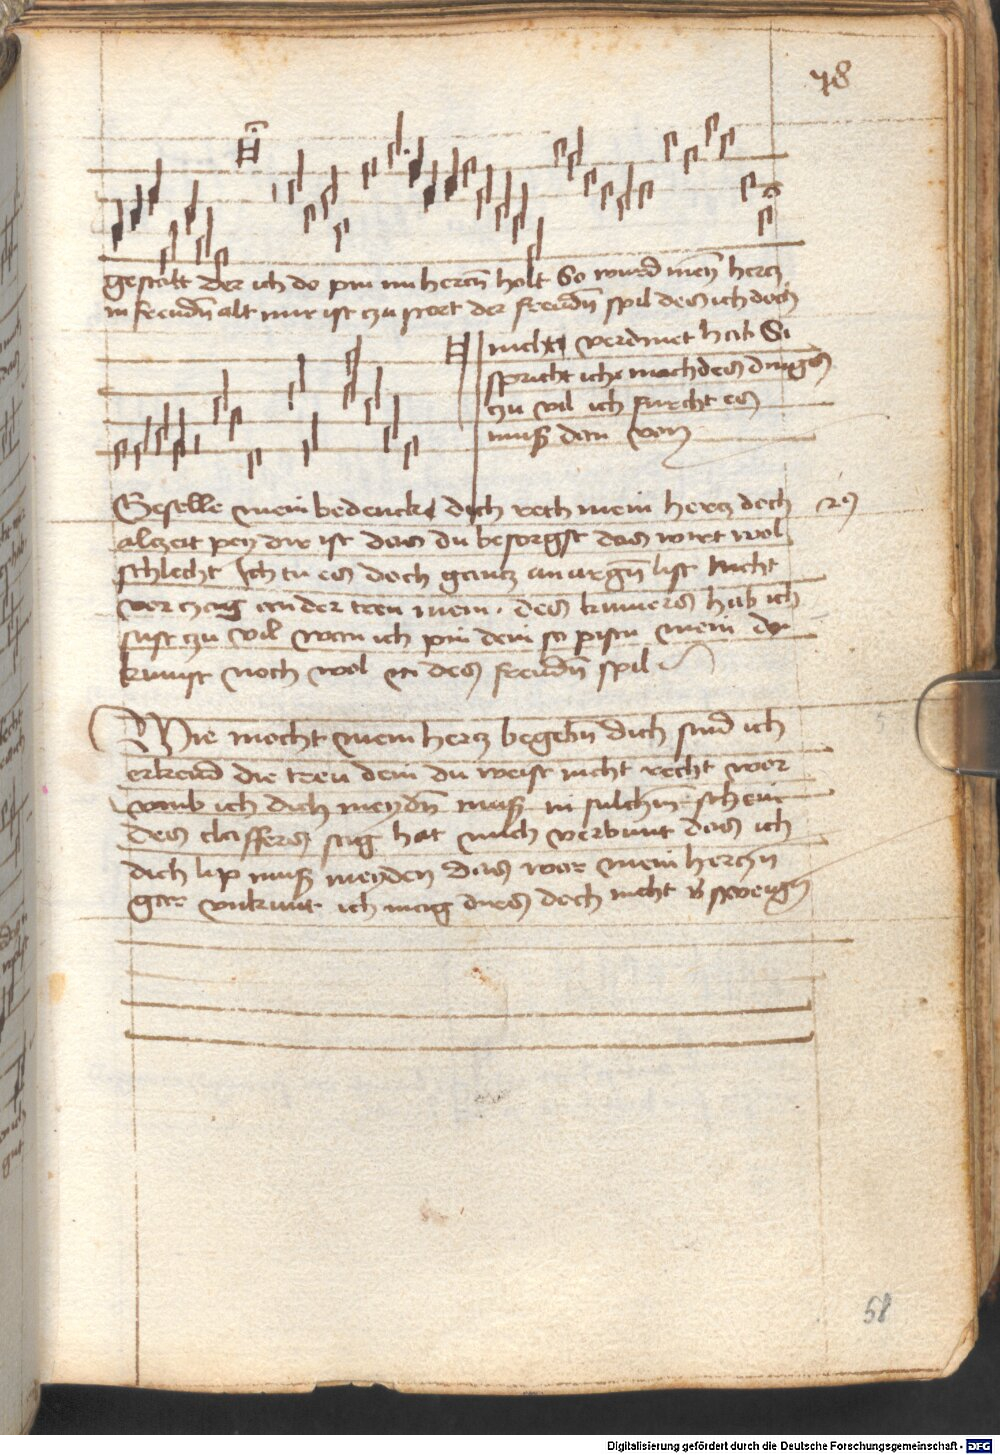 48
gestalt der ich do pin im herczn holt So wurd meȳ hercz
in freudn̄ alt mir ist zu port der freudn̄ spil des ich doch
nicht verdinet hab Si
spricht ich mach des dinges
zu vil ich furcht es
muß dan von
Geselle mein bedenck dich rech mein hercz doch 29
alczeit pey dir ist das du besorgst das wirt wol
schlecht Ich tu es doch gancz an argn̄ list Nicht
verczag an der treu mein . des kumers hab ich
sust zu vil wan ich pin dein so pistu mein do
kumst noch wol in des freudn̄ spil
Wie mocht mein hercz begebn̄ dich sind ich
erkend die treu dein du weist nicht recht wor
vmb ich dich meydn̄ muß in sulchem schein
des claffers sag hat mich verbunt das ich
dich lip muß meyden Das wor mein herczn̄
gar vnkunt ich mag dires doch nicht v̄sweygn̄
58
Digitalisierung gefördert durch die Deutsche Forschungsgemeinschaft - DFG